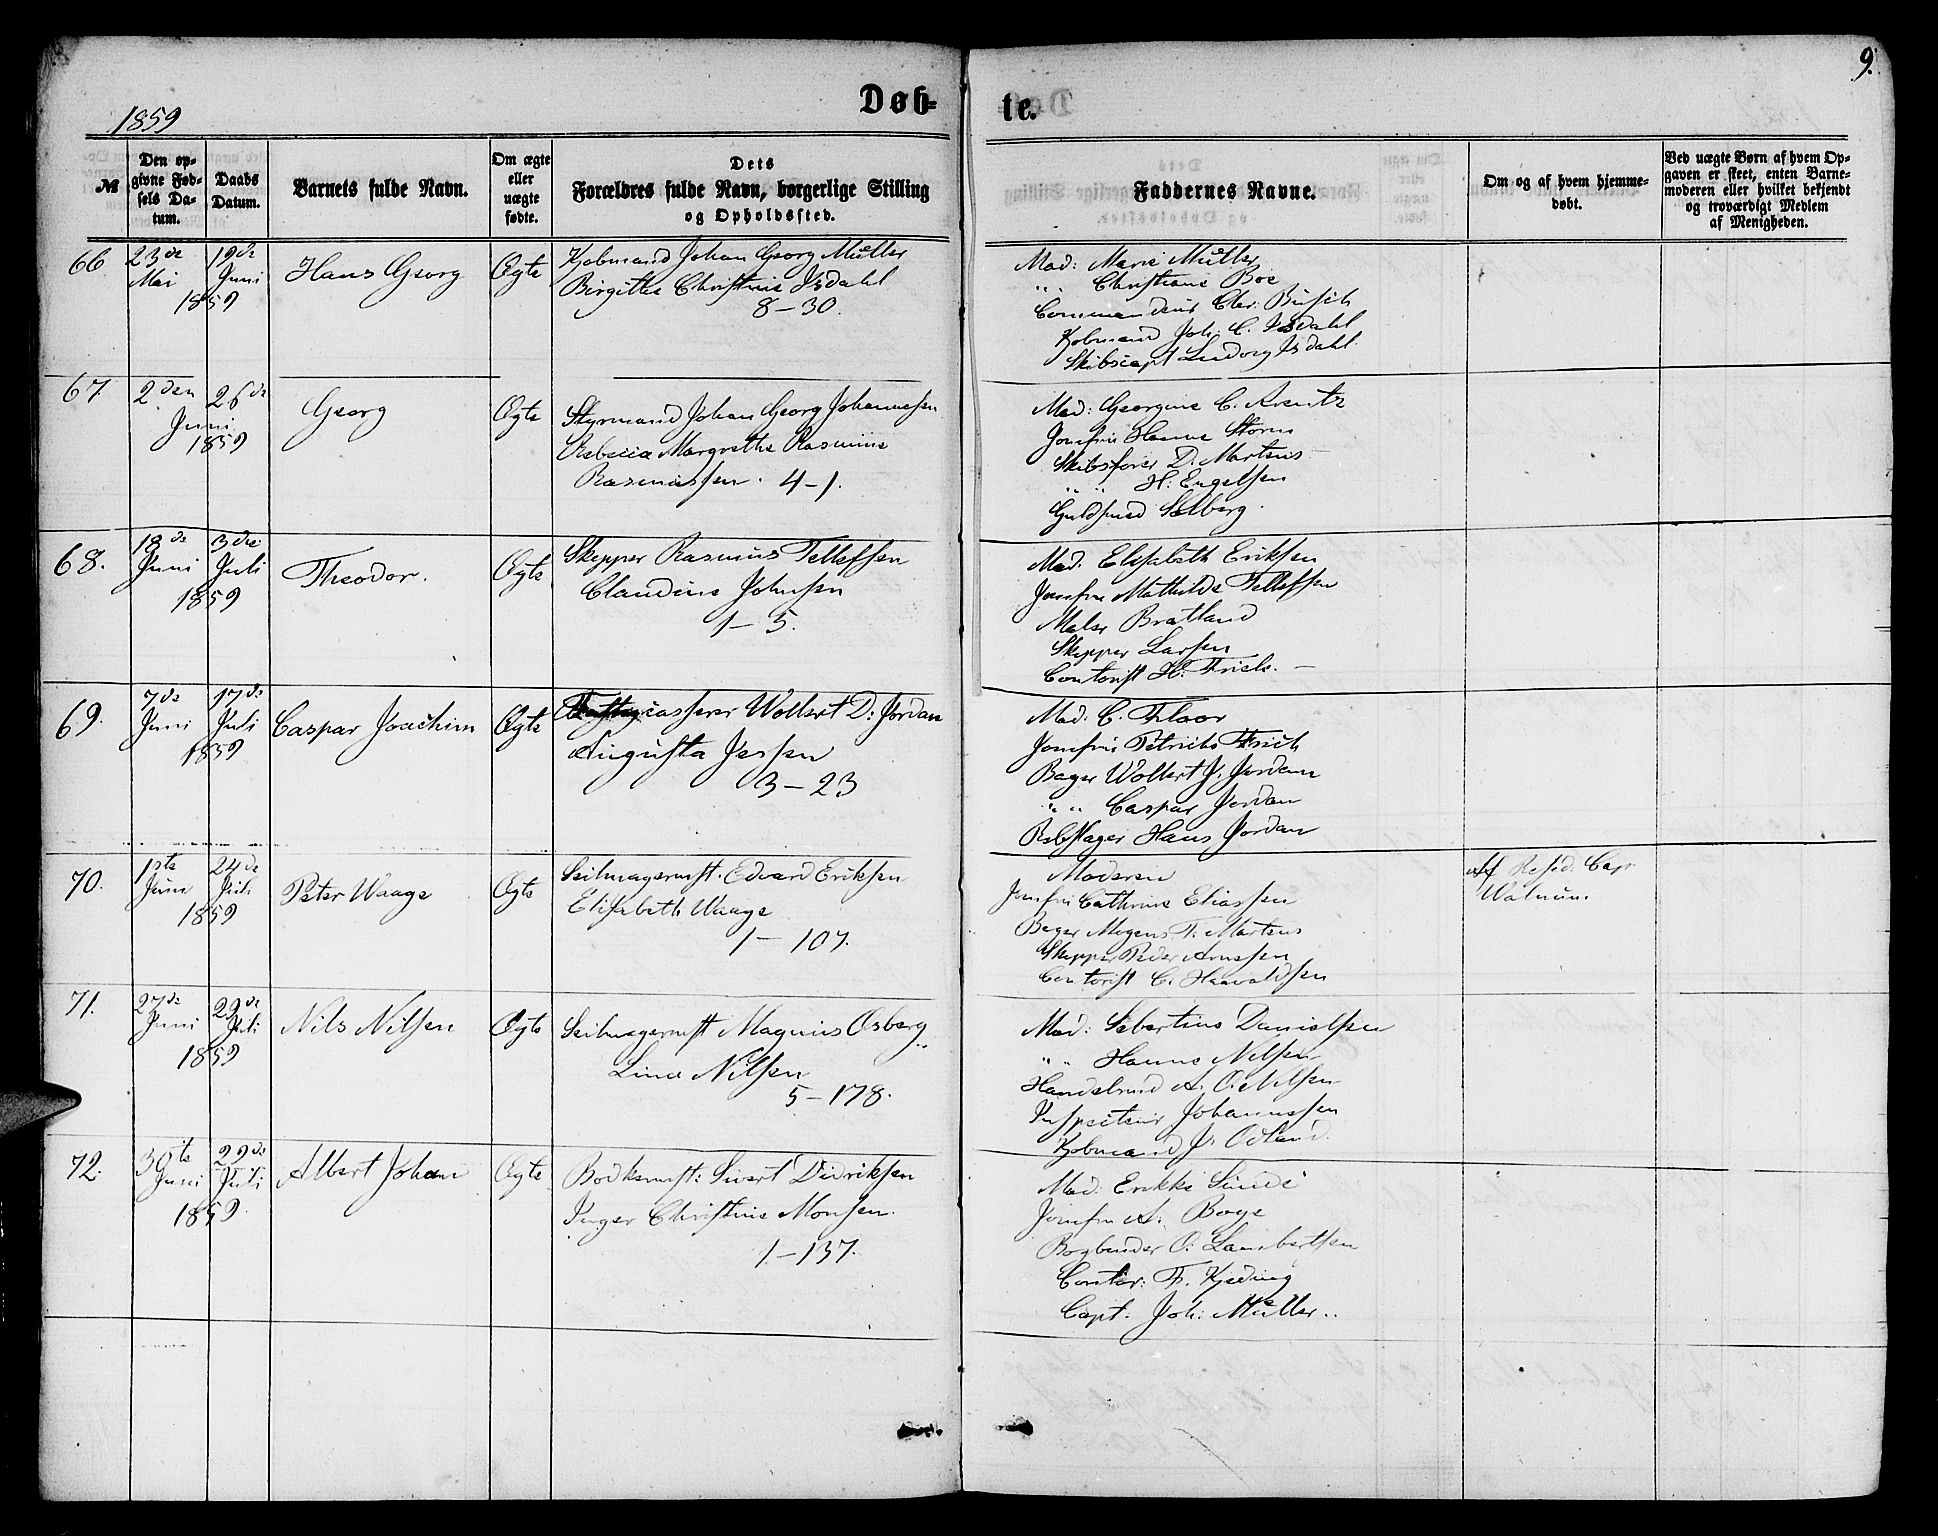 1859
Døb-
te.
9.
№
Den opgivne Fødsels Datum.
Daabs Datum.
Barnets fulde Navn.
Om ægte eller uægte fødte.
Dets Forældres fulde Navn, borgerlige Stilling og Opholdssted.
Faddernes Navne.
Om og af hvem hjemmedøbt.
Ved uægte Børn af hvem Opgaven er skeet, enten Barnemoderen eller hvilket bekjendt og troværdigt Medlem af Menigheden.
66
23de Mai
19de Juni
1859
Hans Georg
Ægte
Kjøbmand Johan Georg Müller
Birgitte Christine Isdahl
8-30.
Mad: Marie Müller
„ „ Christiane Boe
Commandeur Chr: Büsch
Kjøbmand Joh: C. Isdahl
Skibscapt Ludvig Isdahl
67
2den Juni
26de
1859
Georg
Ægte
Styrmand Johan Georg Johannesen
Rebecca Margrethe Rasmine
Rasmussen. 4-1.
Mad: Georgine C. Arentz
Jomfru Hanne Storm
Skibsfører D. Martens
„ „ H. Engelsen
Guldsmed Selberg.
68.
18de Juni
3die Juli
1859
Theodor.
Ægte
Skipper Rasmus Tellefsen
Claudine Johnsen
1-5.
Mad. Elisabeth Eriksen
Jomfru Mathilde Tellefsen
Maler Bratland
Skipper Larsen
Contorist H. Friele.
69.
7de Juni
17de Juli
1859
Caspar Joachim
Ægte
casserer Wollert D: Jordan
Augusta Jessen
3-23
Mad: C. Floor
Jomfru Petriche Friele
Bager Wollert J. Jordan
„ „ Caspar Jordan
Rebslager Hans Jordan
70.
1ste Juni
24de Juli
1859
Peter Waage
Ægte
Seilmagermst. Edvard Eriksen
Elisabeth Waage
1-107.
Moderen
Jomfru Cathrine Eliassen
Bager Mogens T. Martens
Skipper Peder Arnesen
Contorist C. Haavaldsen
Af Resid. Cap.
Walnum.
71.
27de Juni
29de Juli
1859
Nils Nilsen
Ægte
Seilmagermst Magnus Osberg
Lina Nilsen
5-178.
Mad: Sebertine Danielsen
„ „ Hanne Nilsen
Handelsmd A. O. Nilsen
Inspecteur Johannessen
Kjøbmand J. Odland.
72.
30te Juni
29de Juli
1859
Albert Johan
Ægte
Bødkermst: Sivert Didriksen
Inger Christine Monsen.
1-137.
Mad: Erikke Sunde
Jomfru A. Boye
Bogbinder O: Lambertsen
Contor: Fr. Kjeding
Capt. Joh: Müller..